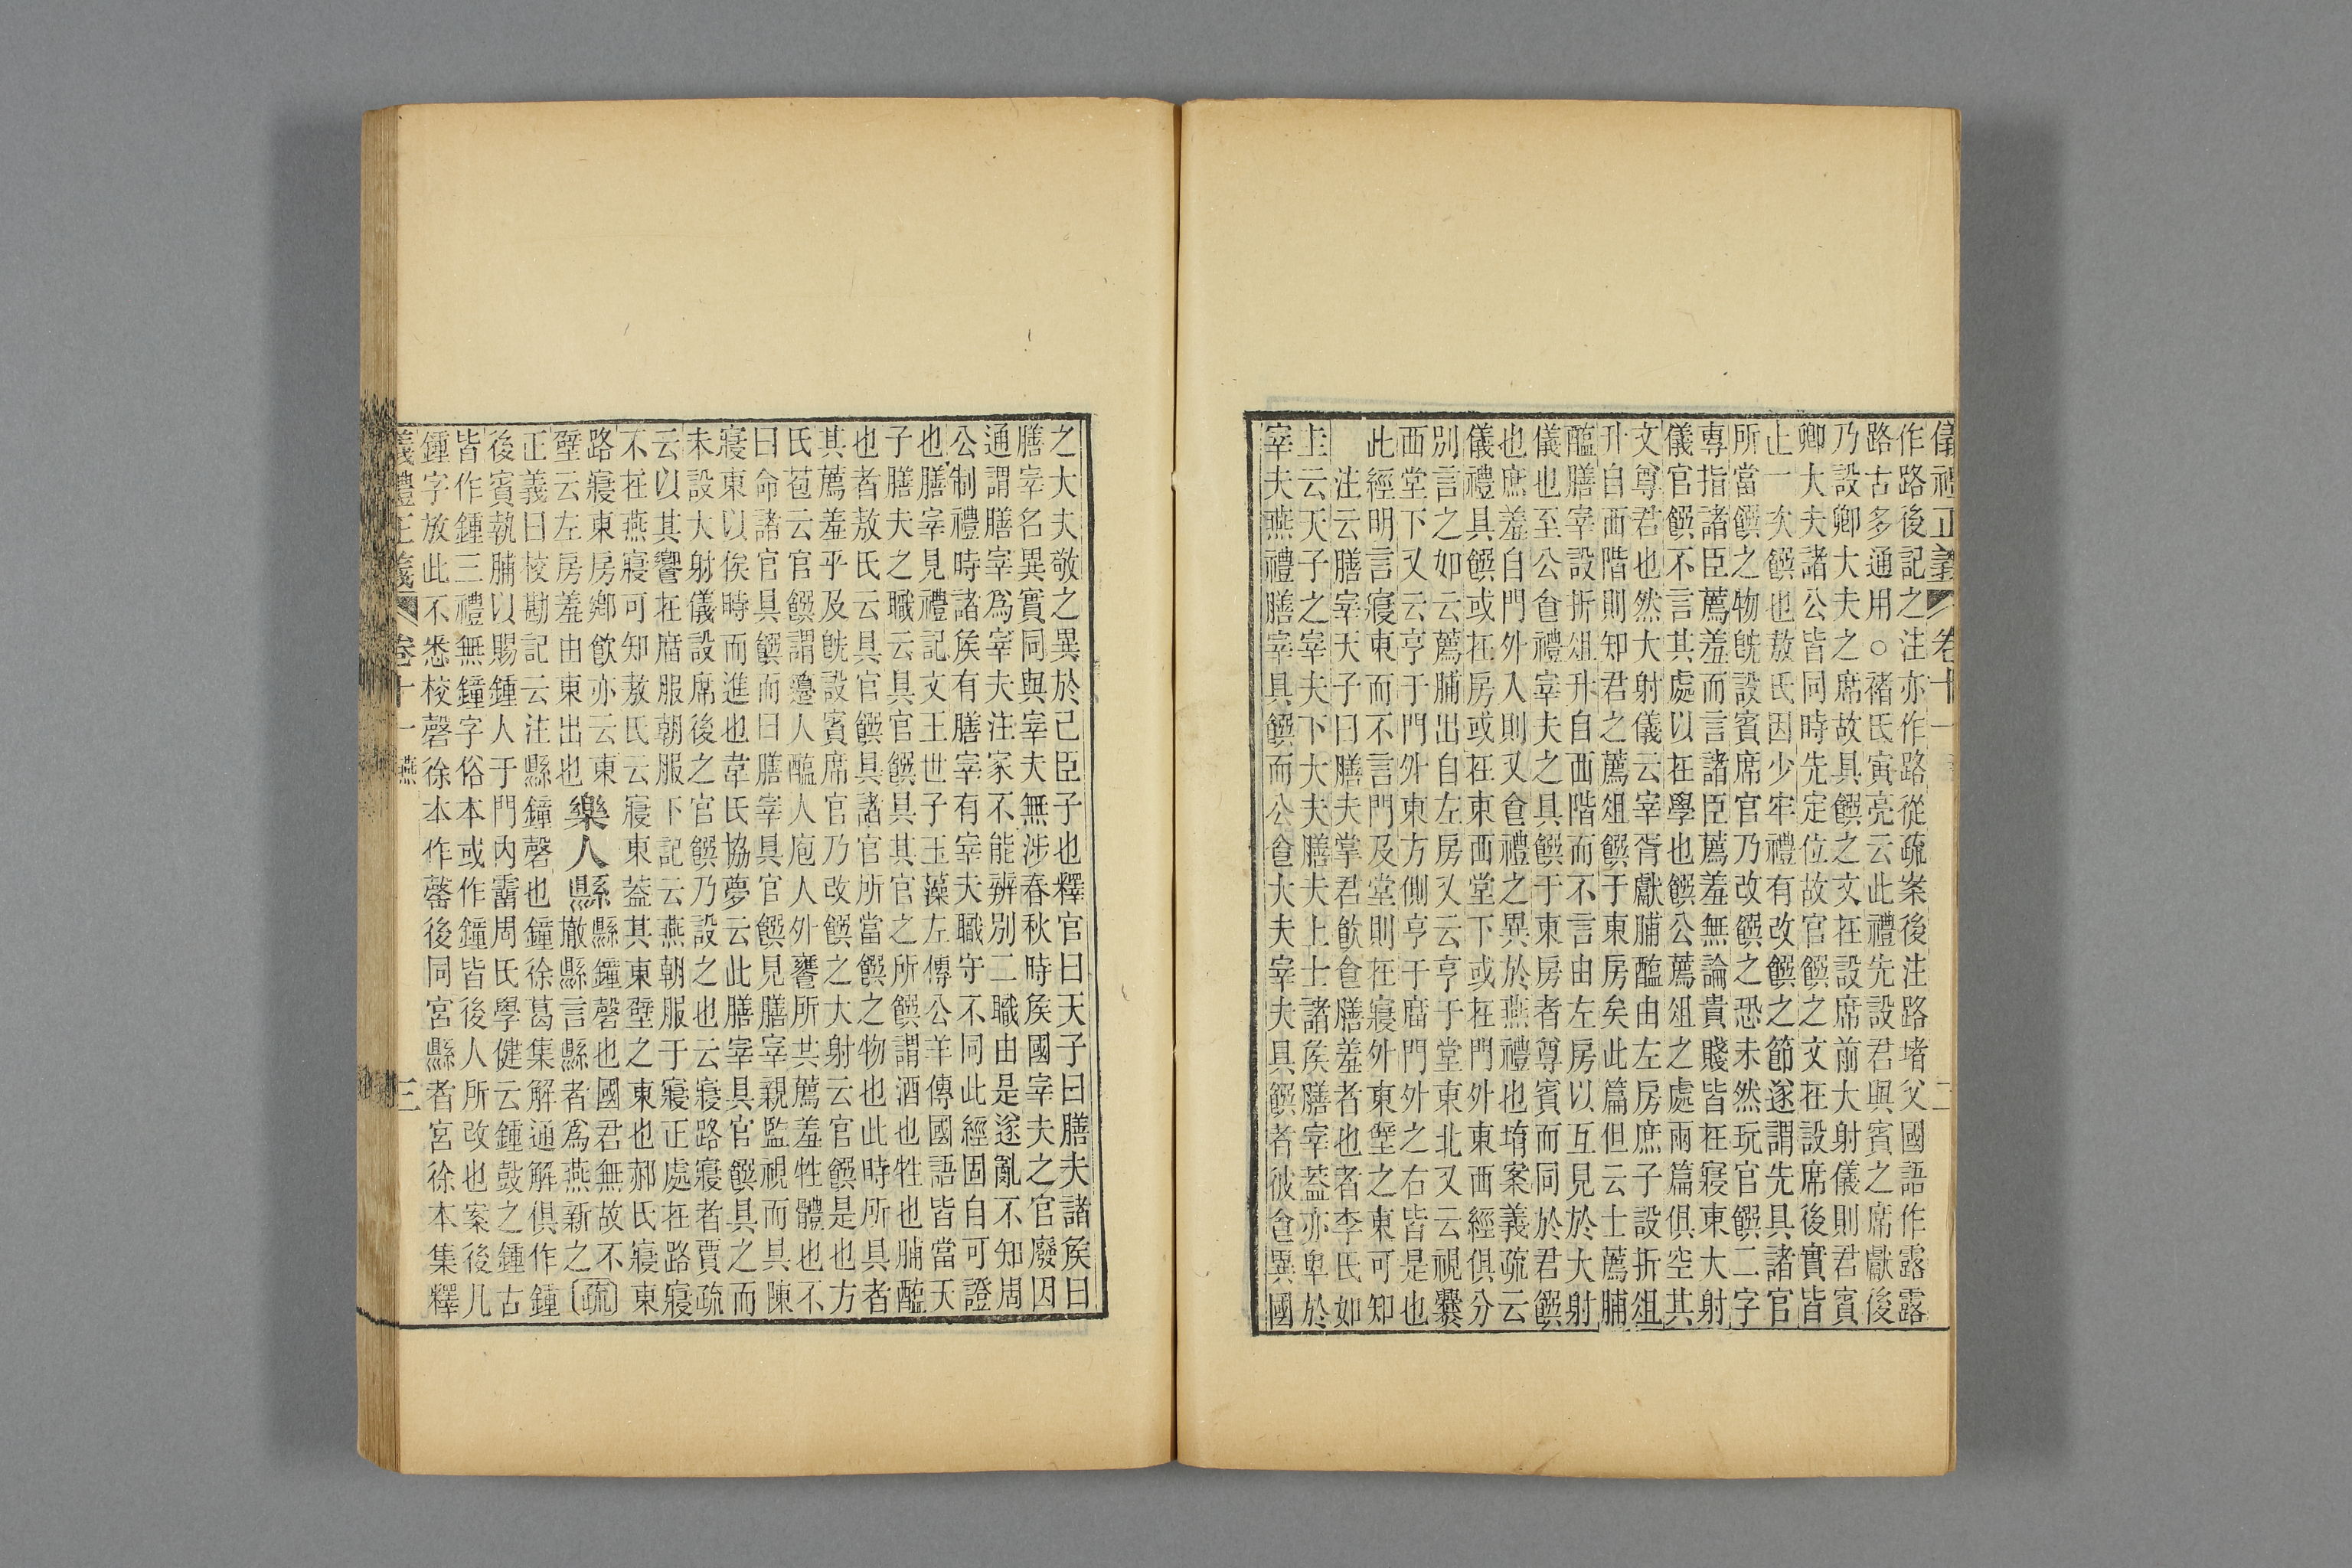 儀禮正義 卷十一 二
作路後記之注亦作路從疏案後注路堵父國語作露露
路古多通用○褚氏寅亮云此禮先設君與賓之席獻後
乃設卿大夫之席故具饌之文在設席前大射儀則君賓
卿大夫諸公皆同時先定位故官饌之文在設席後實皆
止一次饌也敖氏因少牢禮有改饌之節遂謂先具諸官
所當饌之物旣設賓席官乃改饌之恐未然玩官饌二字
專指諸臣薦羞而言諸臣薦羞無論貴賤皆在寢東大射
儀官饌不言其處以在學也饌公薦俎之處兩篇俱空其
文尊君也然大射儀云宰胥獻脯醢由左房庶子設折俎
升自西階則知君之薦俎饌于東房矣此篇但云士薦脯
醢膳宰設折俎升自西階而不言由左房以互見於大射
儀也至公食禮宰夫之具饌于東房者尊賓而同於君饌
也庶羞自門外入則又食禮之異於燕禮也堉案義疏云
儀禮具饌或在房或在東西堂下或在門外東西經俱分
別言之如云薦脯出自左房又云亨于堂東北又云視爨
西堂下又云亨于門外東方側亨于庿門外之右皆是也
此經明言寢東而不言門及堂則在寢外東壁之東可知
注云膳宰天子曰膳夫掌君飲食膳羞者也者李氏如
圭云天子之宰夫下大夫膳夫上士諸矦膳宰葢亦卑於
宰夫燕禮膳宰具饌而公食大夫宰夫具饌者彼食異國
之大夫敬之異於己臣子也釋官曰天子曰膳夫諸矦曰
膳宰名異實同與宰夫無涉春秋時矦國宰夫之官廢因
通謂膳宰爲宰夫注家不能辨別二職由是遂亂不知周
公制禮時諸矦有膳宰有宰夫職守不同此經固自可證
也膳宰見禮記文王世子玉藻左傳公羊傳國語皆當天
子膳夫之職云具官饌具其官之所饌謂酒也牲也脯醢
也者敖氏云具官饌具諸官所當饌之物也此時所具者
其薦羞乎及旣設賓席官乃改饌之大射云官饌是也方
氏苞云官饌謂籩人醢人庖人外饔所共薦羞牲體也不
曰命諸官具饌而曰膳宰具官饌見膳宰親監視而具陳
寢東以俟時而進也韋氏協夢云此膳宰具官饌具之而
未設大射儀設席後之官饌乃設之也云寢路寢者賈疏
云以其饗在庿服朝服下記云燕朝服于寢正處在路寢
不在燕寢可知敖氏云寢東葢其東壁之東也郝氏寢東
路寢東房鄉飲亦云東
壁云左房羞由東出也樂人縣縣鐘磬也國君無故不撤縣言縣者爲燕新之〔疏〕
正義曰校勘記云注縣鐘磬也鐘徐葛集解通解俱作鍾
後賓執脯以賜鍾人于門內霤周氏學健云鍾鼓之鍾古
皆作鍾三禮無鐘字俗本或作鐘皆後人所改也案後凡
鍾字放此不悉校磬徐本作罄後同宮縣者宮徐本集釋
儀禮正義 卷十一 燕 三